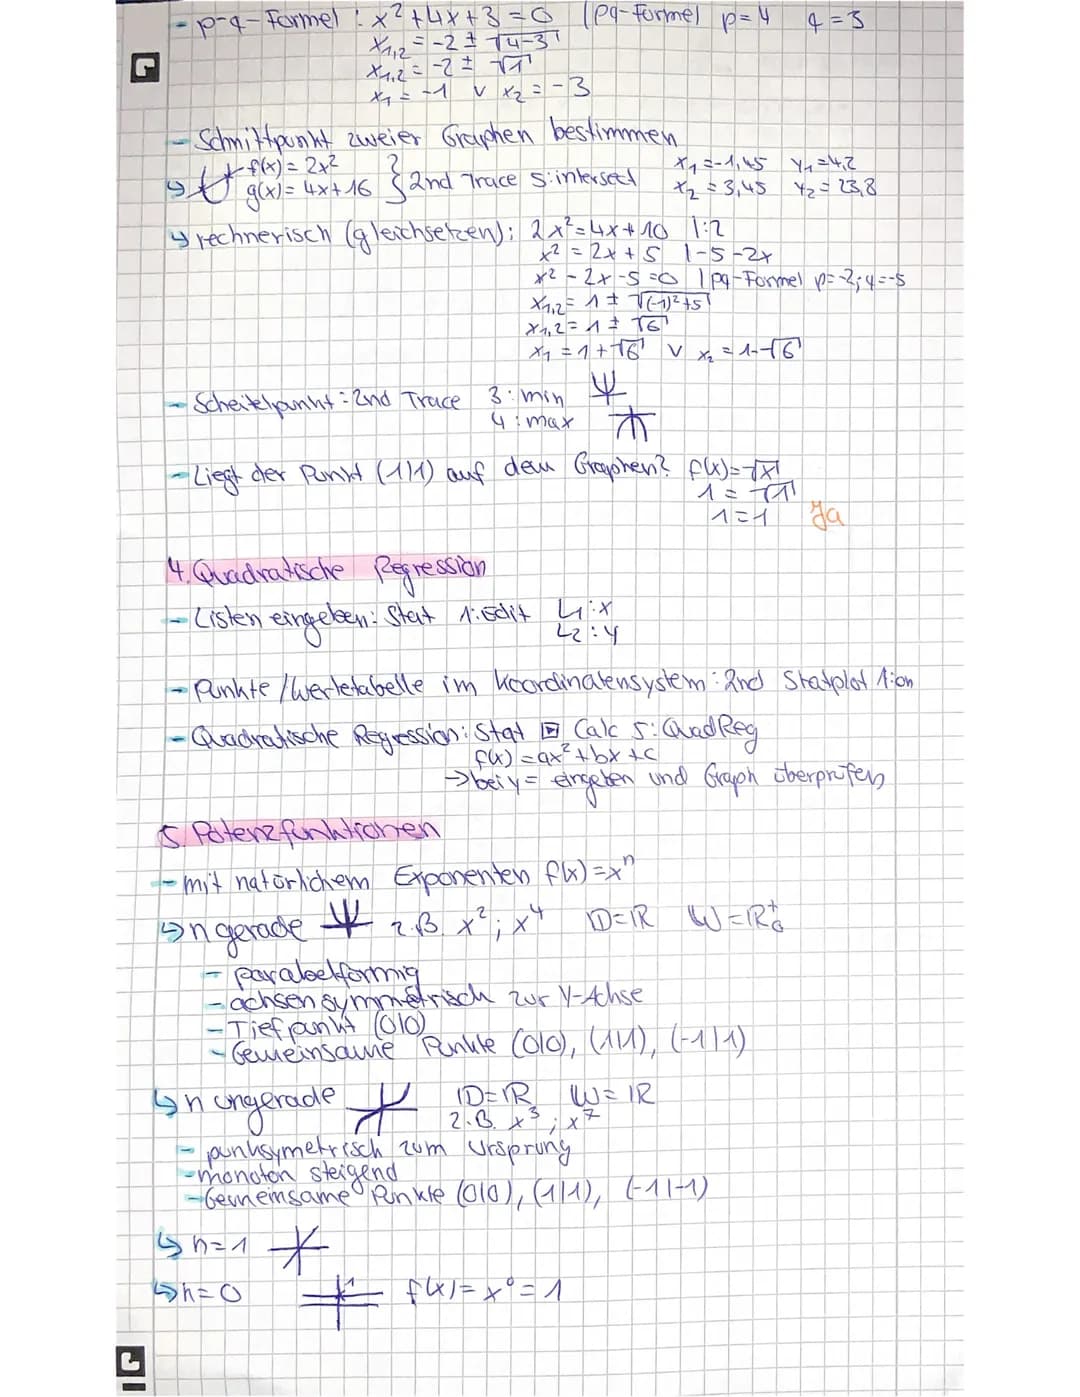 - p-q-Formel : x²+4x+3=0 |pq-Formel p=4 q=3
x₁,₂=-2±√4-3
x₁,₂=-2±√1
x₁=-1 v x₂=-3
- Schnittpunkt zweier Graphen bestimmen
f(x)=2x²
g(x)=4x+16 } 2nd Trace 5:intersect x₁=-1,45 y₁=4,2
x₂=3,45 y₂=23,8
↳ rechnerisch (gleichsetzen): 2x²=4x+10 |:2
x²=2x+5 |-5-2x
x²-2x-5=0 |pq-Formel p=-2; q=-5
x₁,₂=1±√(-1)²+5
x₁,₂=1±√6
x₁=1+√6 v x₂=1-√6
- Scheitelpunkt: 2nd Trace 3:min
4:max
- Liegt der Punkt (1|1) auf dem Graphen? f(x)=√x
1=√1
1=1 Ja
4. Quadratische Regression
- Listen eingeben: Stat 1:Edit L1:x
L2:y
- Punkte/Wertetabelle im Koordinatensystem: 2nd Statplot 1:on
- Quadratische Regression: Stat ▸ Calc 5:QuadReg
f(x)=ax²+bx+c
→ bei y= eingeben und Graph überprüfen
5. Potenzfunktionen
- mit natürlichem Exponenten f(x)=xⁿ
↳ n gerade z.B. x²; x⁴ D=ℝ W=ℝ₀⁺
- parabelförmig
- achsensymmetrisch zur Y-Achse
- Tiefpunkt (0|0)
- Gemeinsame Punkte (0|0), (1|1), (-1|1)
↳ n ungerade D=ℝ W=ℝ
z.B. x³; x⁷
- punksymetrisch zum Ursprung
- monoton steigend
- Gemeinsame Punkte (0|0), (1|1), (-1|-1)
↳ n=1
↳ n=0 1 f(x)=x⁰=1